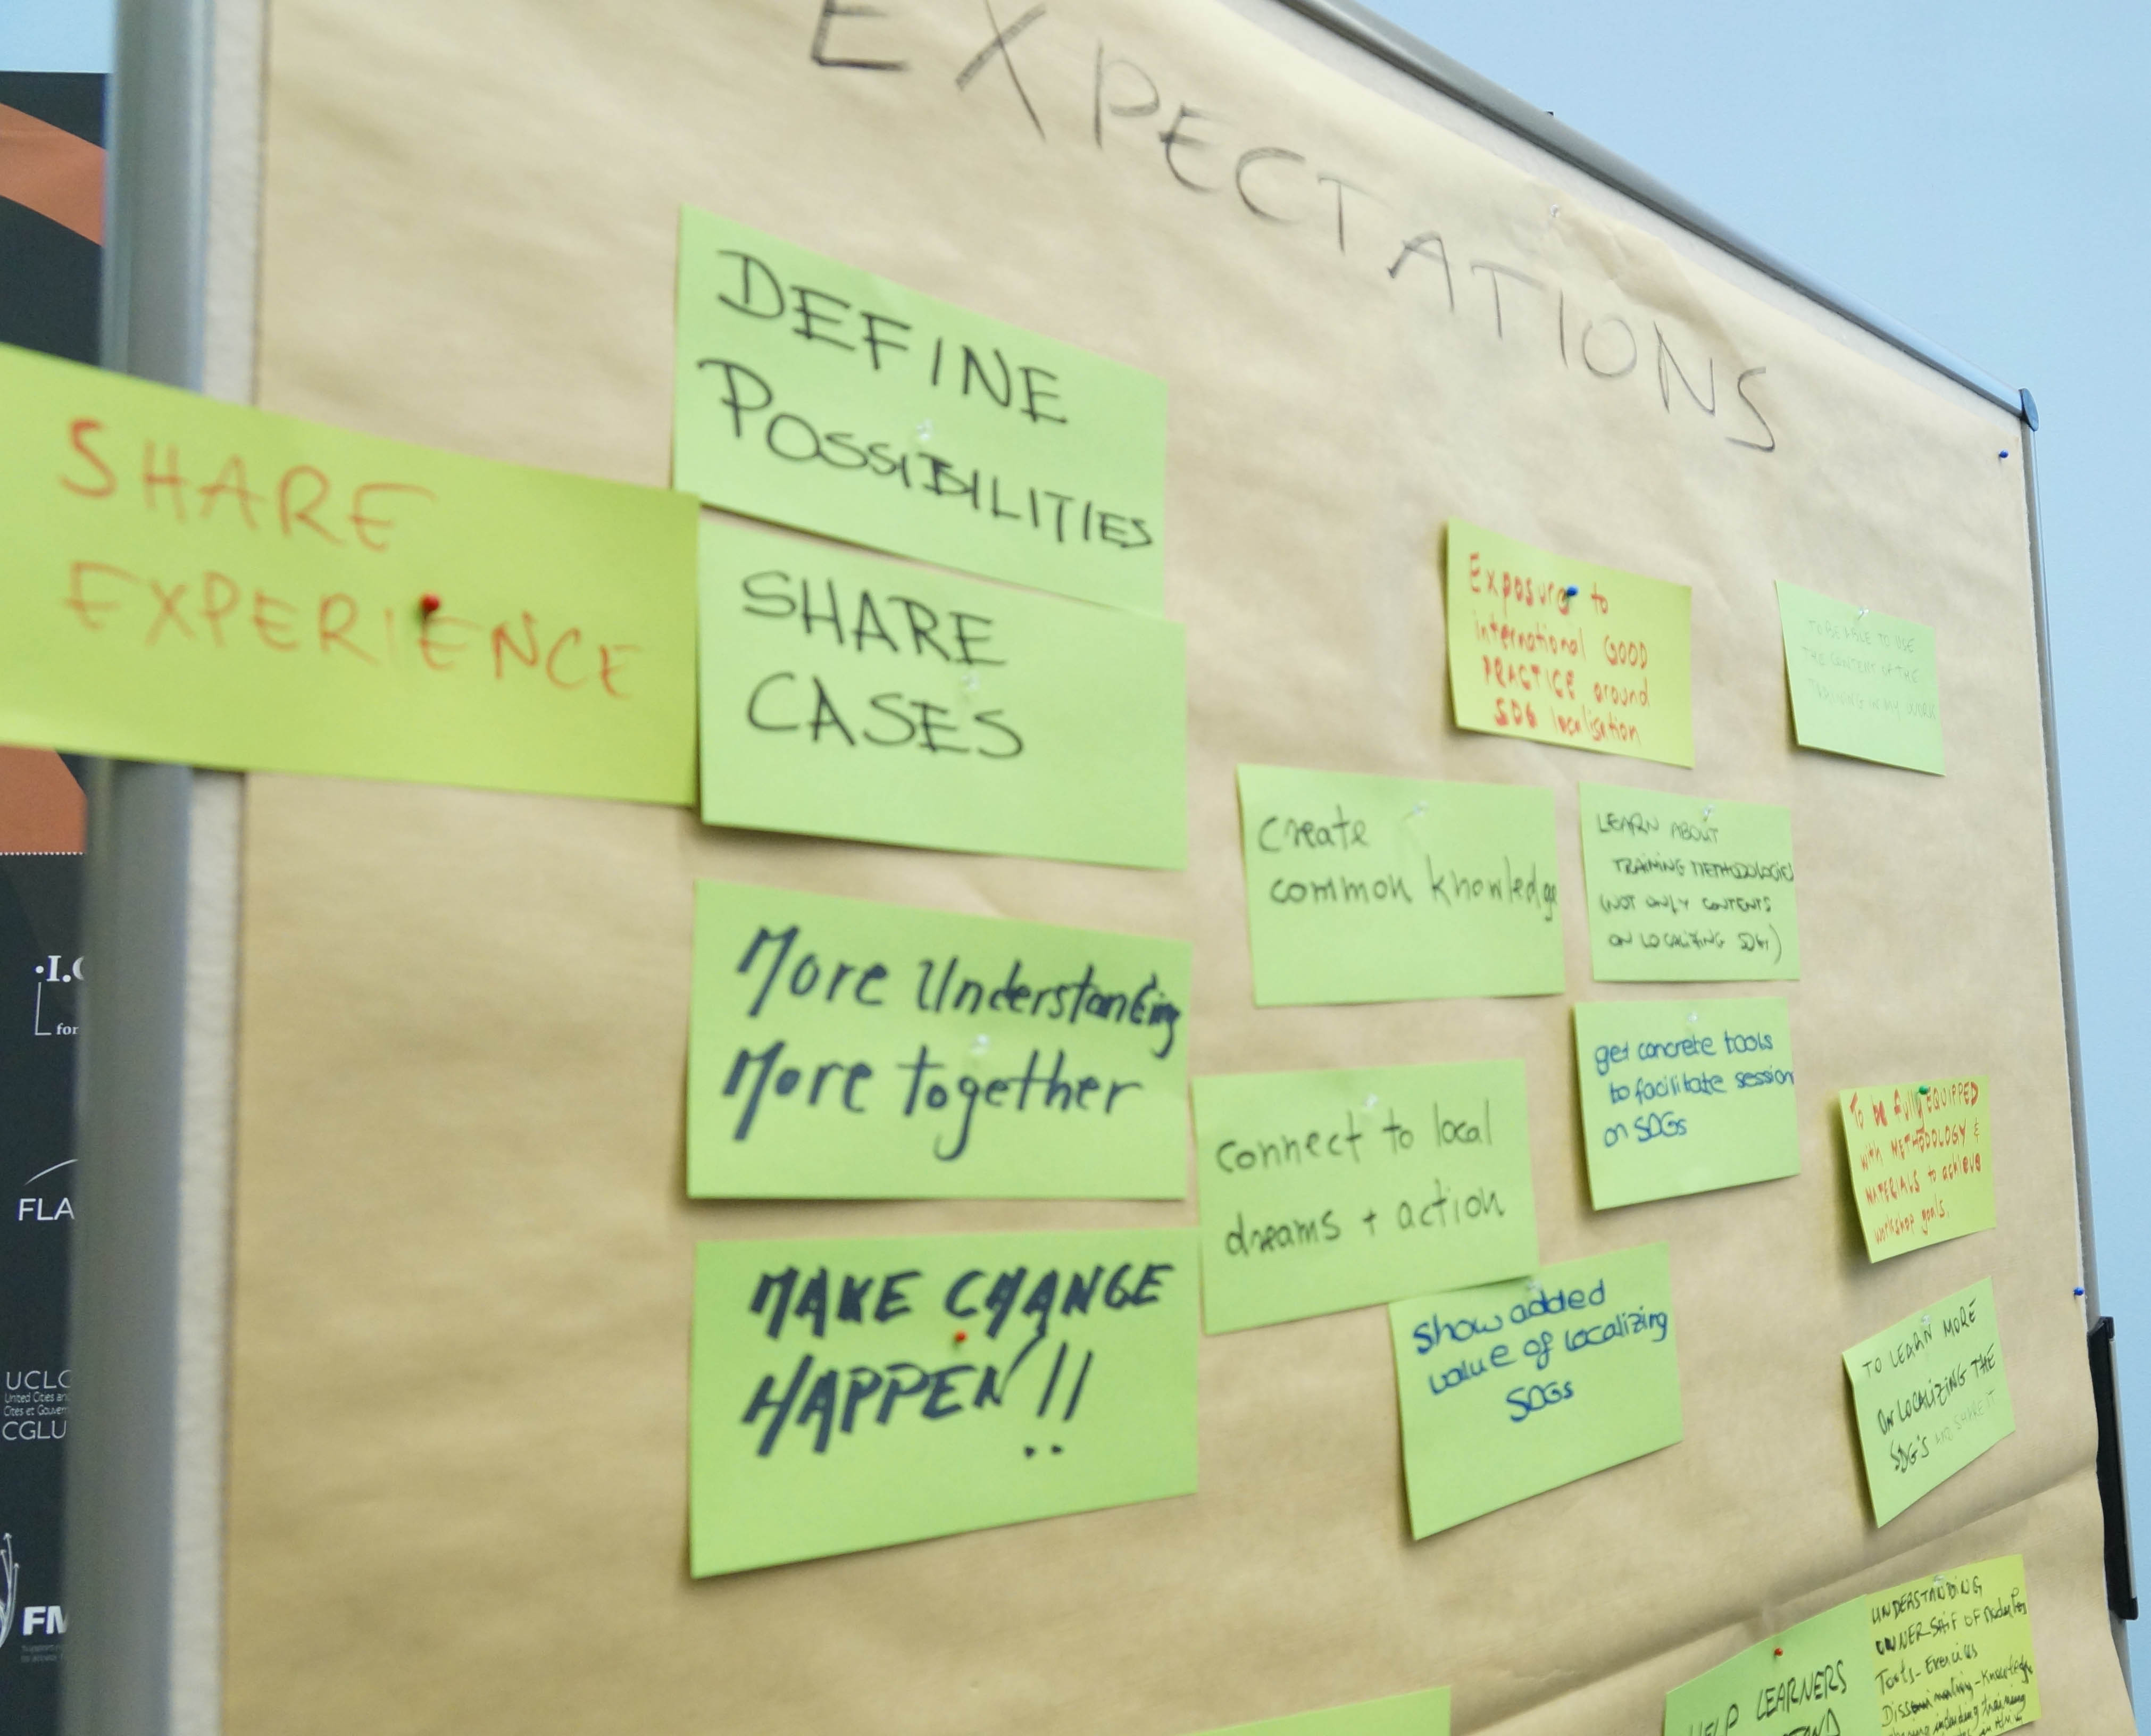 EXPECTATIONS
DEFINE
POSSIBILITIES
SHARE
EXPERIENCE
SHARE
CASES
More Understanding
More together
MAKE CHANGE
HAPPEN!!
Exposure to
international GOOD
PRACTICE around
SDG localisation
TO BE ABLE TO USE
THE CONTENT OF THE
TRAINING IN MY WORK
Create
common knowledge
LEARN ABOUT
TRAINING METHODOLOGIES
(NOT ONLY CONTENTS
ON LOCALIZING SDGs)
connect to local
dreams + action
get concrete tools
to facilitate session
on SDGs
Show added
value of localizing
SDGs
To be fully EQUIPPED
with METHODOLOGY &
MATERIALS to achieve
workshop goals.
TO LEARN MORE
ON LOCALIZING THE
SDG'S AND SHARE IT
HELP LEARNERS
UNDERSTANDING
OWNERSHIP OF
Tools - Exercises
Disseminating - Knowledge
including training
.I.
for
FLA
UCLG
United Cities an
Cités et Gouver
CGLU
FM